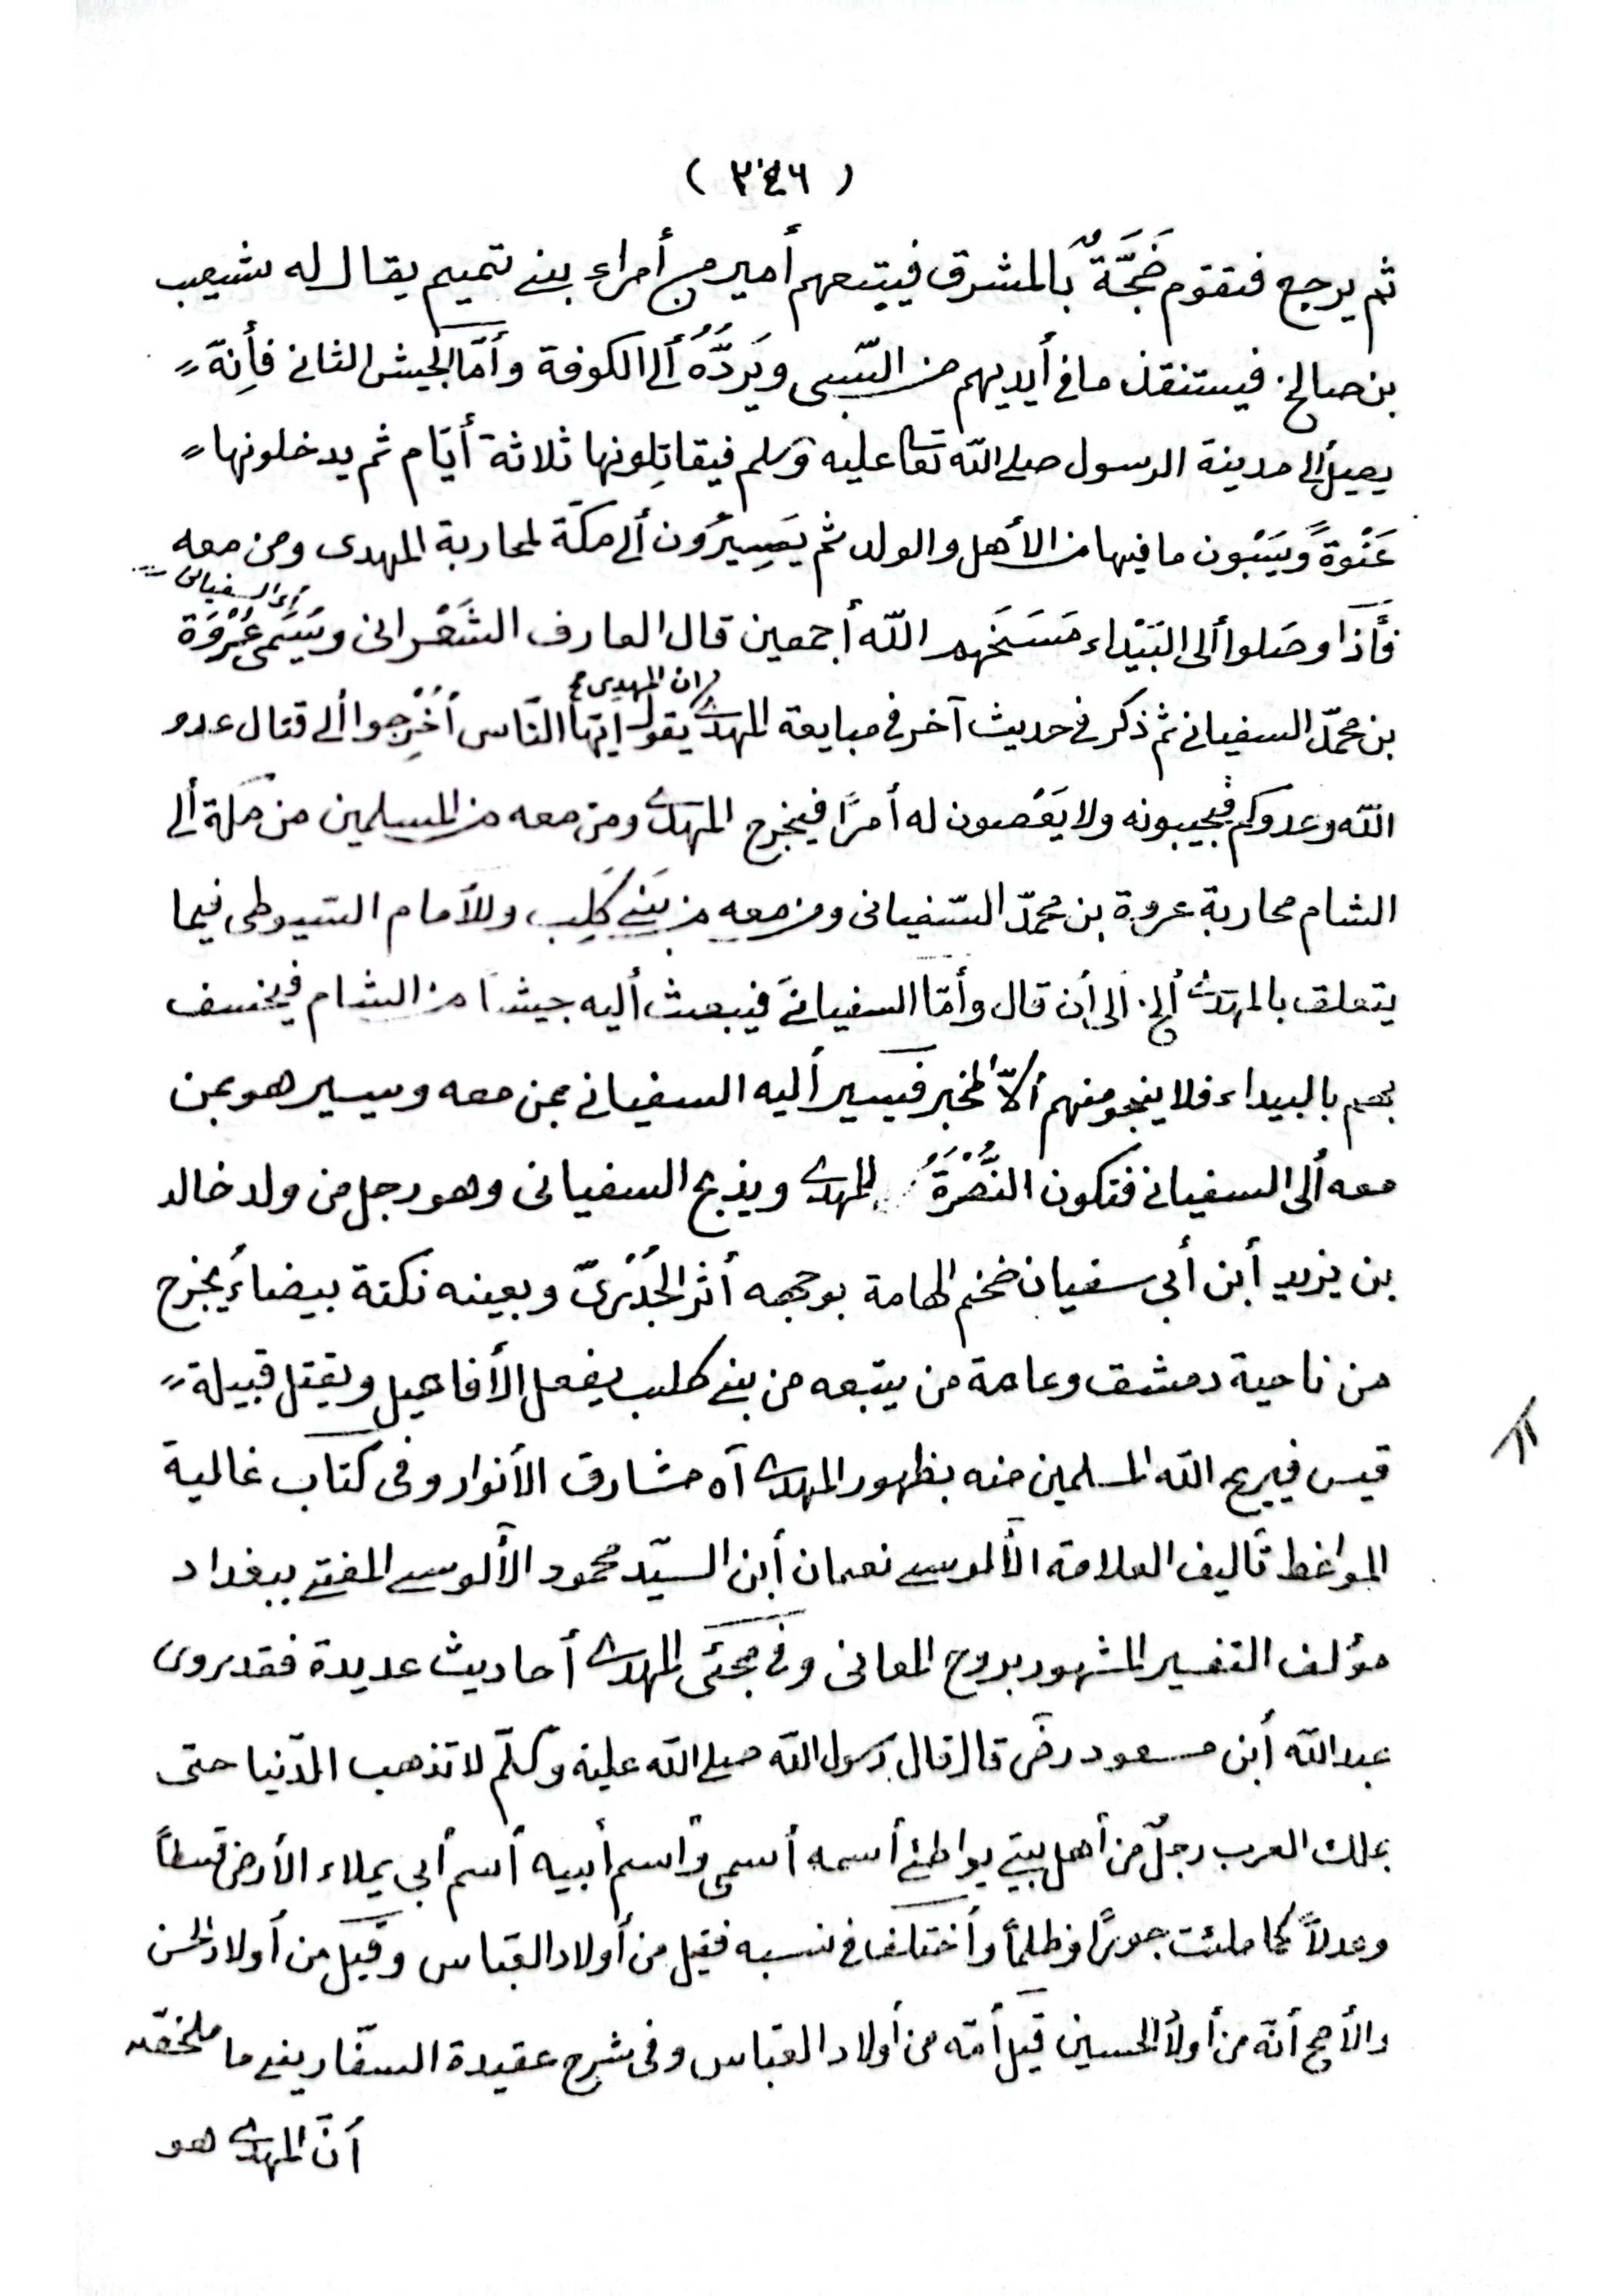 ( ٣٤٦ )
ثم يرجع فتقوم ضَجَّةٌ بالمشرق فيتبعهم أمير من أمراء بني تميم يقال له شعيب
بن صالح. فيستنقذ ما في أيديهم من السّبى ويَردُّهُ ألى الكوفة وأمّا الجيش الثانى فأِنّه
يصل ألى مدينة الرسول صلى الله تعا عليه وسلم فيقاتِلونها ثلاثة أيّام ثم يدخلونها
عَنْوةً ويَسْبُون ما فيها من الأهل والولد ثم يَسِيرُون ألى مكّة لمحاربة المهدى ومن معه
أى السفيانى
فأذا وصَلوا ألى البَيْداء مَسَخَهم الله أجمعين قال العارف الشَعْرانى ويُسَمى عُرْوَة
ان المهدى
بن محمّد السفيانى ثم ذكر فى حديث آخر فى مبايعة المهدى يقول أيّها النّاس أُخْرِجوا ألى قتال عدو
الله وعدوكم فيجيبونه ولا يَعْصون له أمرًا فيخرج المهدى ومن معه من المسلمين من مكة ألى
الشام محاربة عروة بن محمّد السّفيانى ومن معه من بَنى كَلِب وللأمام السّيوطى فيما
يتعلق بالمهدى ألخ. الى أن قال وأمّا السفيانى فيبعث أليه جيشاً من الشام فيخسف
بهم بالبيداء فلا ينجو منهم ألاّ المخبر فيسير أليه السفيانى بمن معه ويسير هو بمن
معه ألى السفيانى فتكون النُّصْرَةُ للمهدى ويذبح السفيانى وهو رجل من ولد خالد
بن يزيد أبن أبى سفيان ضخم الهامة بوجهه أثر الجُدْرىّ وبعينه نكتة بيضاءُ يخرج
من ناحية دمشق وعامة من يتبعه من بنى كلب يفعل الأفاعيل ويقتل قبيلة
قيس فيريح الله المسلمين منه بظهور المهدى آه مشارق الأنوار وفى كتاب غالية
المواغط تأليف العلامة الآلوسى نعمان أبن السيّد محمود الآلوسى المفتى ببغداد
مؤلف التفسير المشهور بروح المعانى وفى مجئى المهدى أحاديث عديدة فقد روى
عبد الله أبن مسعود رضَ قال قال رسول الله صلى الله عليه وسلّم لا تذهب الدّنيا حتى
يملك العرب رجلٌ من أهل بيتى يواطئ أسمه أسمى وأسم أبيه أسم أبى يملاء الأرض قسطاً
وعدلاً كما ملئت جورًا وظلماً وأختلف فى نسبه فقيل من أولاد العبّاس وقيل من أولاد الحسن
والأصح أنّه من أولاد الحسين قيل أمّه من أولاد العبّاس وفى شرح عقيدة السفّارينى ما ملخصّه
أنّ المهدى هو